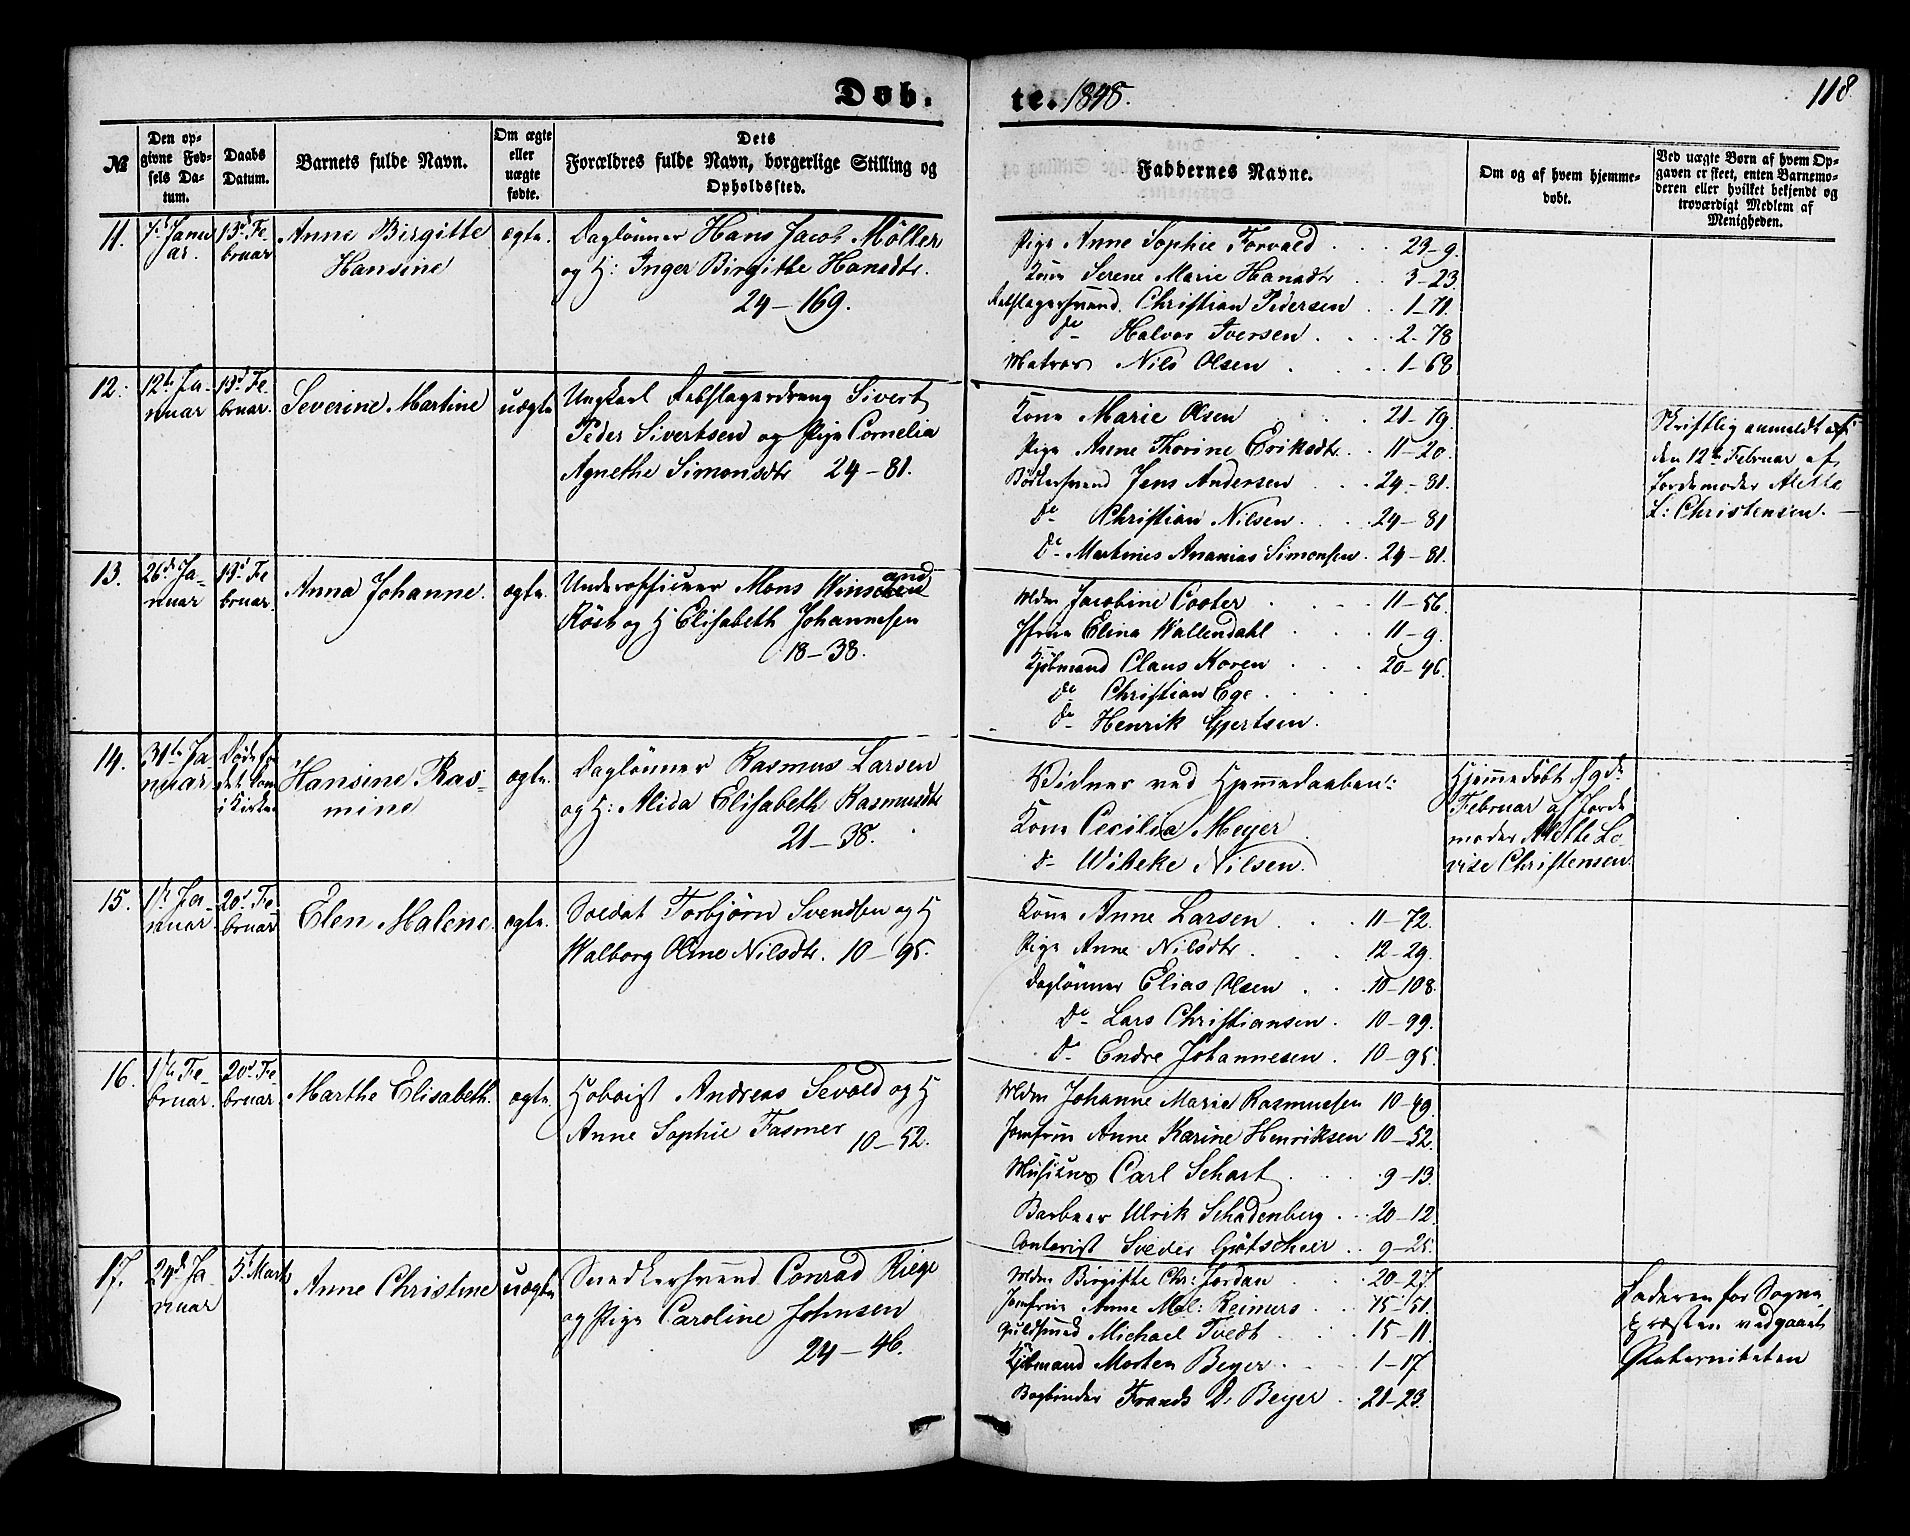 Døb.
te. 1848.
118
№
Den op-
givne Fød-
sels Da-
tum.
Daabs
Datum.
Barnets fulde Navn.
Om ægte
eller
uægte
fødte.
Dets
Forældres fulde Navn, borgerlige Stilling og
Opholdssted.
Faddernes Navne.
Om og af hvem hjemme-
døbt.
Ved uægte Børn af hvem Op-
gaven er skeet, enten Barnemo-
deren eller hvilket bekjendt og
troværdigt Medlem af
Menigheden.
11.
7d Janu
ar.
13d Fe
bruar
Anne Birgitte
Hansine
ægte.
Daglønner Hans Jacob Möller
og H: Inger Birgitte Hansdtr.
24–169.
Pige Anne Sophie Forvald . . . 23–9.
Kone Serene Marie Hansdtr . . 3–23.
Rebslagersvend Christian Pedersen . . 1–71.
do Halvor Iversen . . . 2–78
Matros Nils Olsen . . . 1–68
12.
12te Ja-
nuar
13d Fe
bruar.
Severine Martine
uægte
Ungkarl Rebslagerdreng Sivert
Peder Sivertsen og Pige Cornelia
Agnethe Simonsdtr 24–81.
Kone Marie Olsen . . 21–79.
Pige Anne Thorine Eriksdtr . . 11–20.
Bødkersvend Jens Andersen . . 24–81.
do Christian Nilsen . . . 24–81
do Martines Ananias Simonsen . 24–81.
Skriftlig anmeldt
den 12te Februar af
Jordemoder Alette
L: Christensen.
13.
26d Ja-
nuar
13d Fe
bruar.
Anna Johanne.
ægte.
Underofficeer Mons
Røsb og H Elisabeth Johannesen
18–38.
Mdm Jacobine Cooter . . . 11–56.
Jfrue Elina Wallendahl . . . 11–9.
Kjøbmand Claus Koren . . . 20–46.
do Christian Ege . . . .
do Henrik Gjertsen.
14.
31te Ja
nuar
Døde før
det kom
i Kirken
Hansine Ras-
mine
ægte.
Daglønner Rasmus Larsen
og H: Alida Elisabeth Rasmusdtr
21–38.
Vidner ved Hjemmedaaben:
Kone Cecilia Meyer
do Wibeke Nilsen
Hjemmedøbt 9de
Februar af Jorde
moder Alette Lo
vise Christensen
15.
1te Ja-
nuar.
20d Fe
bruar
Elen Malene.
ægte.
Soldat Torbjørn Svendsen og H
Walborg Oline Nilsdtr. 10–95.
Kone Anne Larsen . . . 11–72.
Pige Anne Nilsdtr . . . 12–29.
Daglønner Elias Olsen . . . 10–108.
do Lars Christiansen . 10–99.
do Endre Johannesen . 10–95.
16.
11te Fe-
bruar.
20d Fe-
bruar.
Marthe Elisabeth.
ægte.
Hoboist Andreas Sevald og H
Anne Sophie Fasmer 10–52.
Mdm Johanne Marie Rasmussen 10–49.
Jomfru Anne Karine Henriksen 10–52.
Musicus Carl Schart . . . 9–13.
Barbeer Ulrik Schadenberg . . 20–12.
Contorist Sveder Götscheer . . 9–25.
17.
24d Ja-
nuar
5t Marts
Anne Christine
uægte
Snedkersvend Conrad Riege
og Pige Caroline Johnsen
24–46.
Mdm Birgitte Chr: Jordan . . 20–27.
Jomfru Anne Mal: Reimers . . 15–51.
Guldsmed Michael Tvedt . . . 15–11.
Kjøbmand Morten Beyer . . . 1–17
Bogbinder Frands D. Beyer . 21–23.
Faderen for Sogne
præsten vedgaaet
Paterniteten